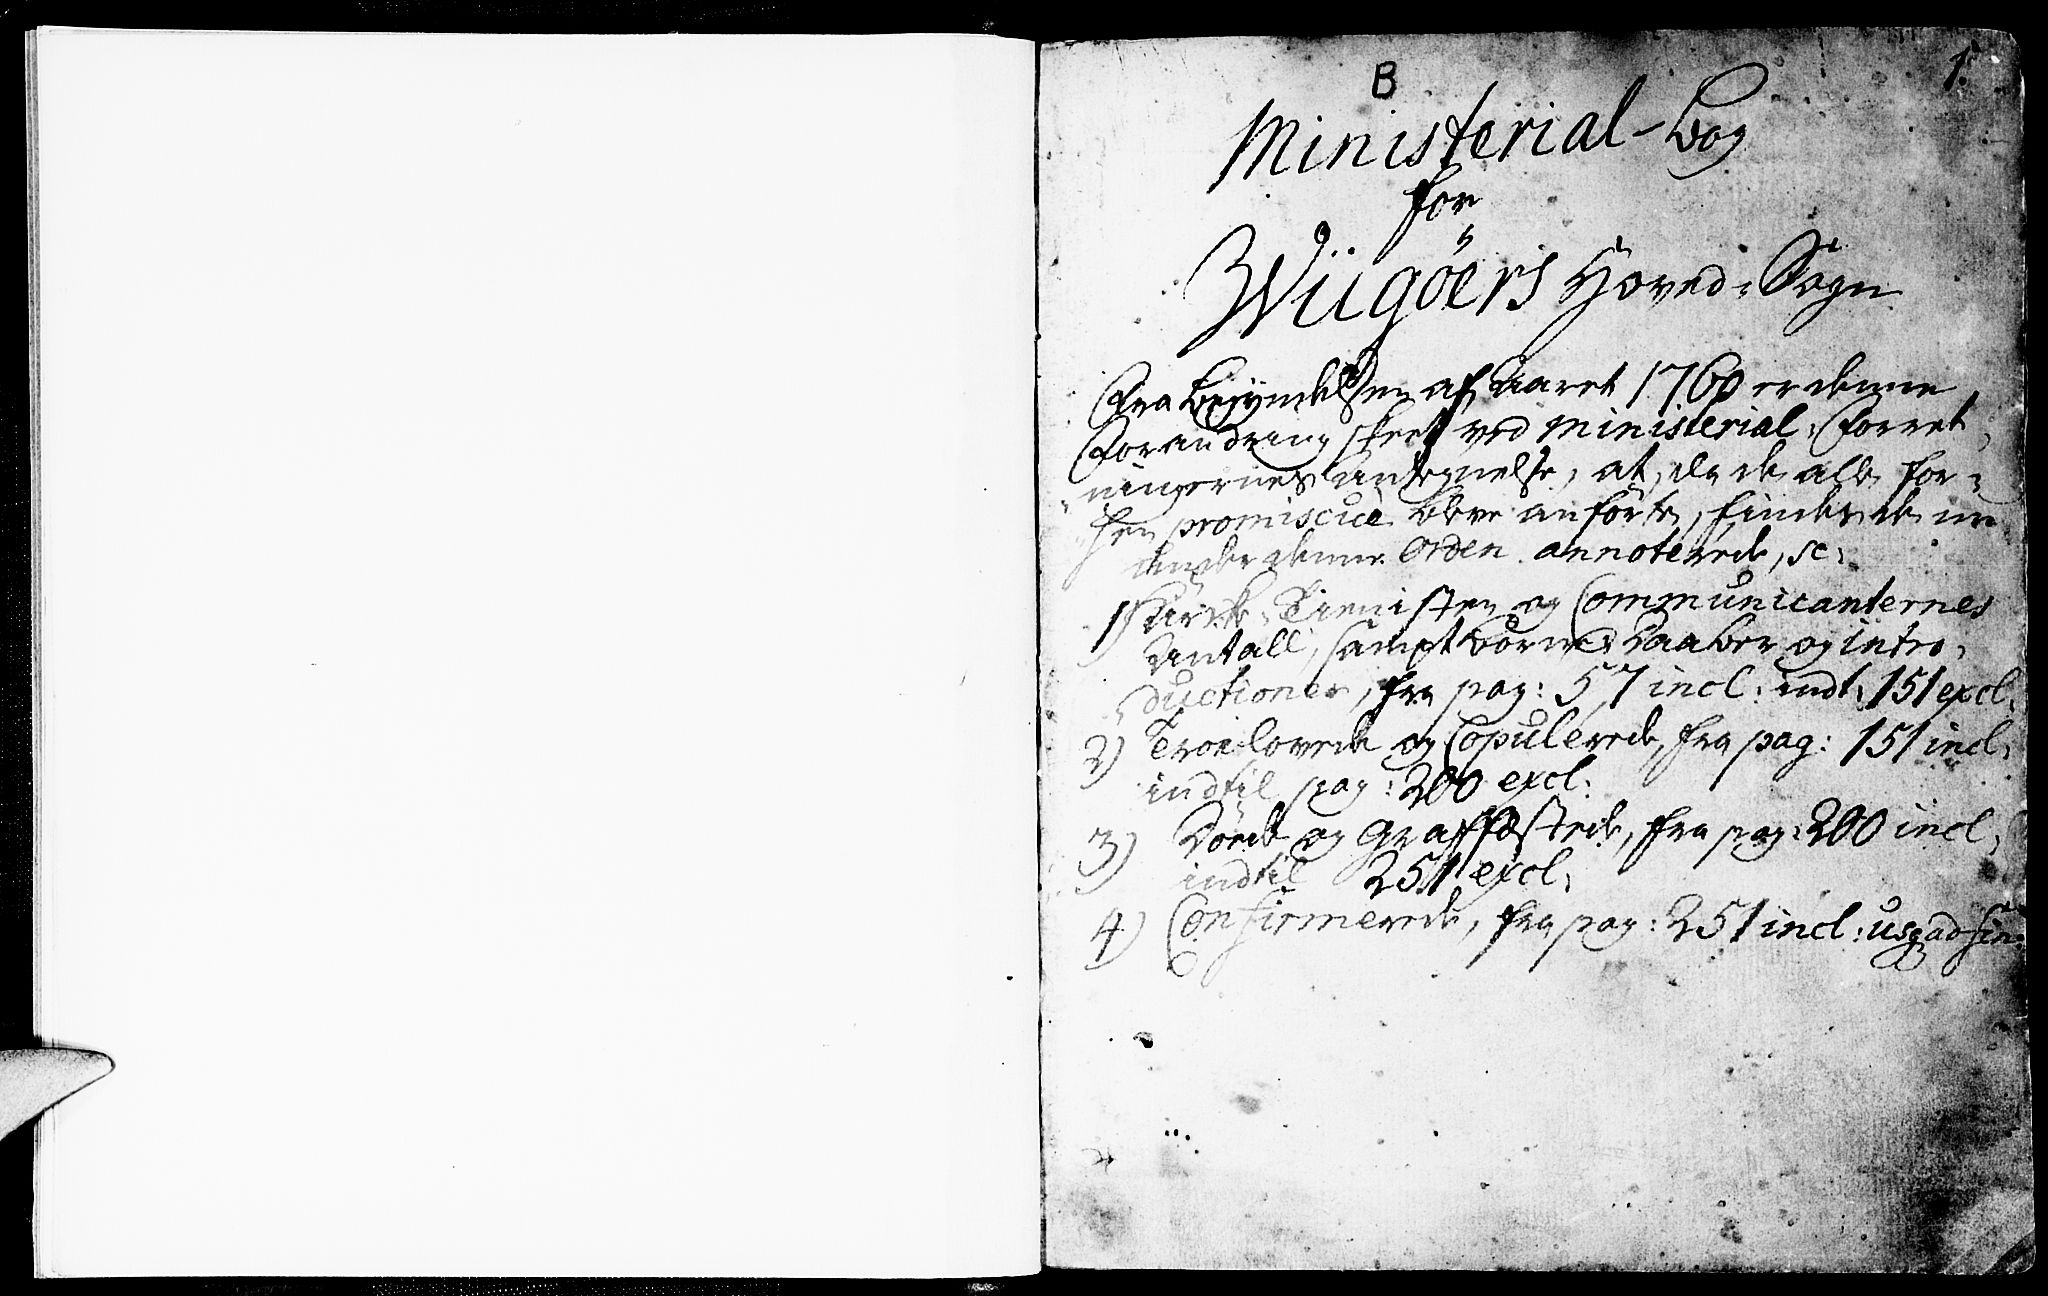 B
1.
Ministerial-Bog
for
Wiigöers Hoved-Sogn
Fra Begyndelsen af Aaret 1760 er denne
Forandring skeet ved Ministerial-Forret-
ningernes Antegnelse, at, da de alle for-
hen promiscue bleve anförte, findes de nu
under denne Orden annoterede, sc:
1) Kirke-Tienisten og Communicanternes
Antall, sampt Börnes Daaber og intro-
ductioner, fra pag: 57 incl: indt: 151 excl:
2) Troelovede og Copulerede, fra pag: 151 incl:
indtil pag: 200 excl:
3) Döde og Graffæstede, fra pag: 200 incl:
indtil 251 excl:
4) Confirmerede, fra pag: 251 incl: usq ad fin: